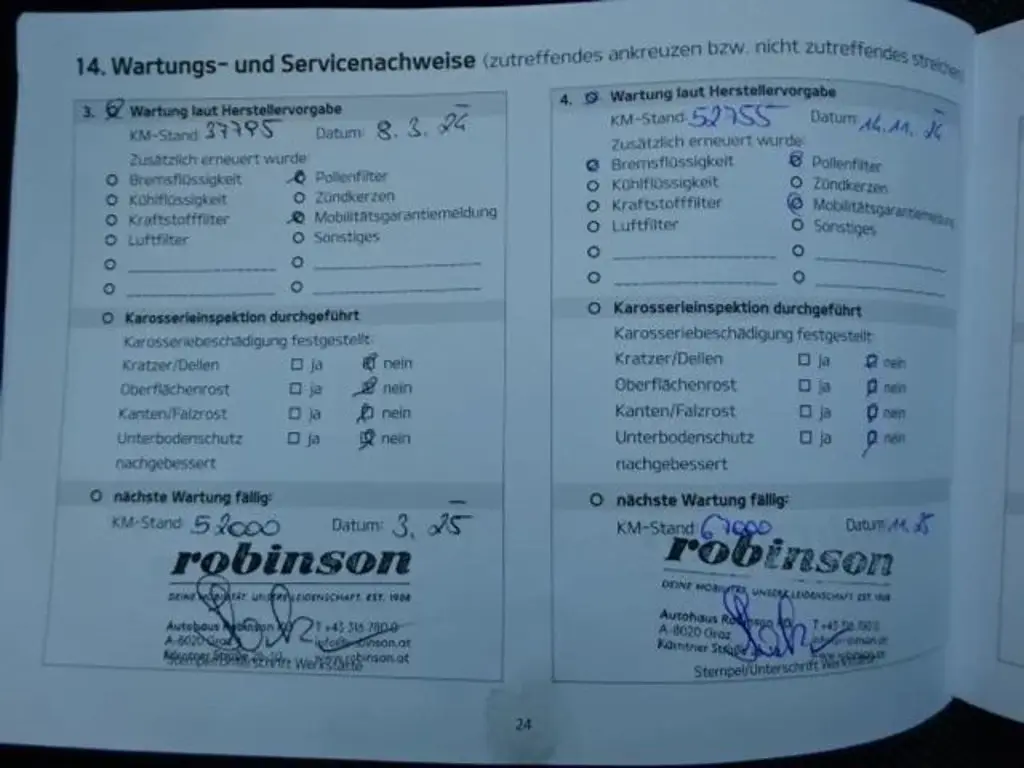 14. Wartungs- und Servicenachweise (zutreffendes ankreuzen bzw. nicht zutreffendes streichen
3. Wartung laut Herstellervorgabe
KM-Stand: 37795 Datum: 8. 3. 24
Zusätzlich erneuert wurde:
Bremsflüssigkeit Pollenfilter
Kühlflüssigkeit Zündkerzen
Kraftstofffilter Mobilitätsgarantiemeldung
Luftfilter Sonstiges
Karosserieinspektion durchgeführt
Karosseriebeschädigung festgestellt:
Kratzer/Dellen ja nein
Oberflächenrost ja nein
Kanten/Falzrost ja nein
Unterbodenschutz ja nein
nachgebessert
nächste Wartung fällig:
KM-Stand: 52000 Datum: 3. 25
robinson
DEINE MOBILITÄT. UNSERE LEIDENSCHAFT. EST. 1908
Autohaus Robinson T +43 316 780 0
A-8020 Graz info@robinson.at
Kärntner Straße robinson.at
Stempel/Unterschrift Werkstätte
4. Wartung laut Herstellervorgabe
KM-Stand: 52755 Datum: 14. 11. 24
Zusätzlich erneuert wurde:
Bremsflüssigkeit Pollenfilter
Kühlflüssigkeit Zündkerzen
Kraftstofffilter Mobilitätsgarantiemeldung
Luftfilter Sonstiges
Karosserieinspektion durchgeführt
Karosseriebeschädigung festgestellt:
Kratzer/Dellen ja nein
Oberflächenrost ja nein
Kanten/Falzrost ja nein
Unterbodenschutz ja nein
nachgebessert
nächste Wartung fällig:
KM-Stand: 67000 Datum: 11. 25
robinson
DEINE MOBILITÄT. UNSERE LEIDENSCHAFT. EST. 1908
Autohaus Robinson T +43 316 780 0
A-8020 Graz
Kärntner Straße www.robinson.at
Stempel/Unterschrift Werkstätte
24